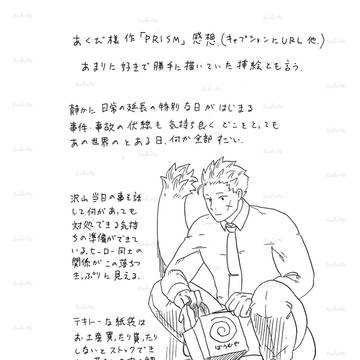 あくび様作「PRISM」感想.(キャプションにURL他.)
あまりに好きで勝手に描いていた挿絵とも言う.
静かに日常の延長の特別な日がはじまる
事件.事故の伏線も気持ち良くどこをとっても
あの世界のとある日.何か全部すごい.
沢山当日の事を話
して何があっても
対処できる気持
ちの準備ができて
いる.ヒーロー同士の
関係がこの落ちつ
きっぷりに見える.
テキトーな紙袋は
お土産買ったり貰ったり
しないとストックでき
ほうじや